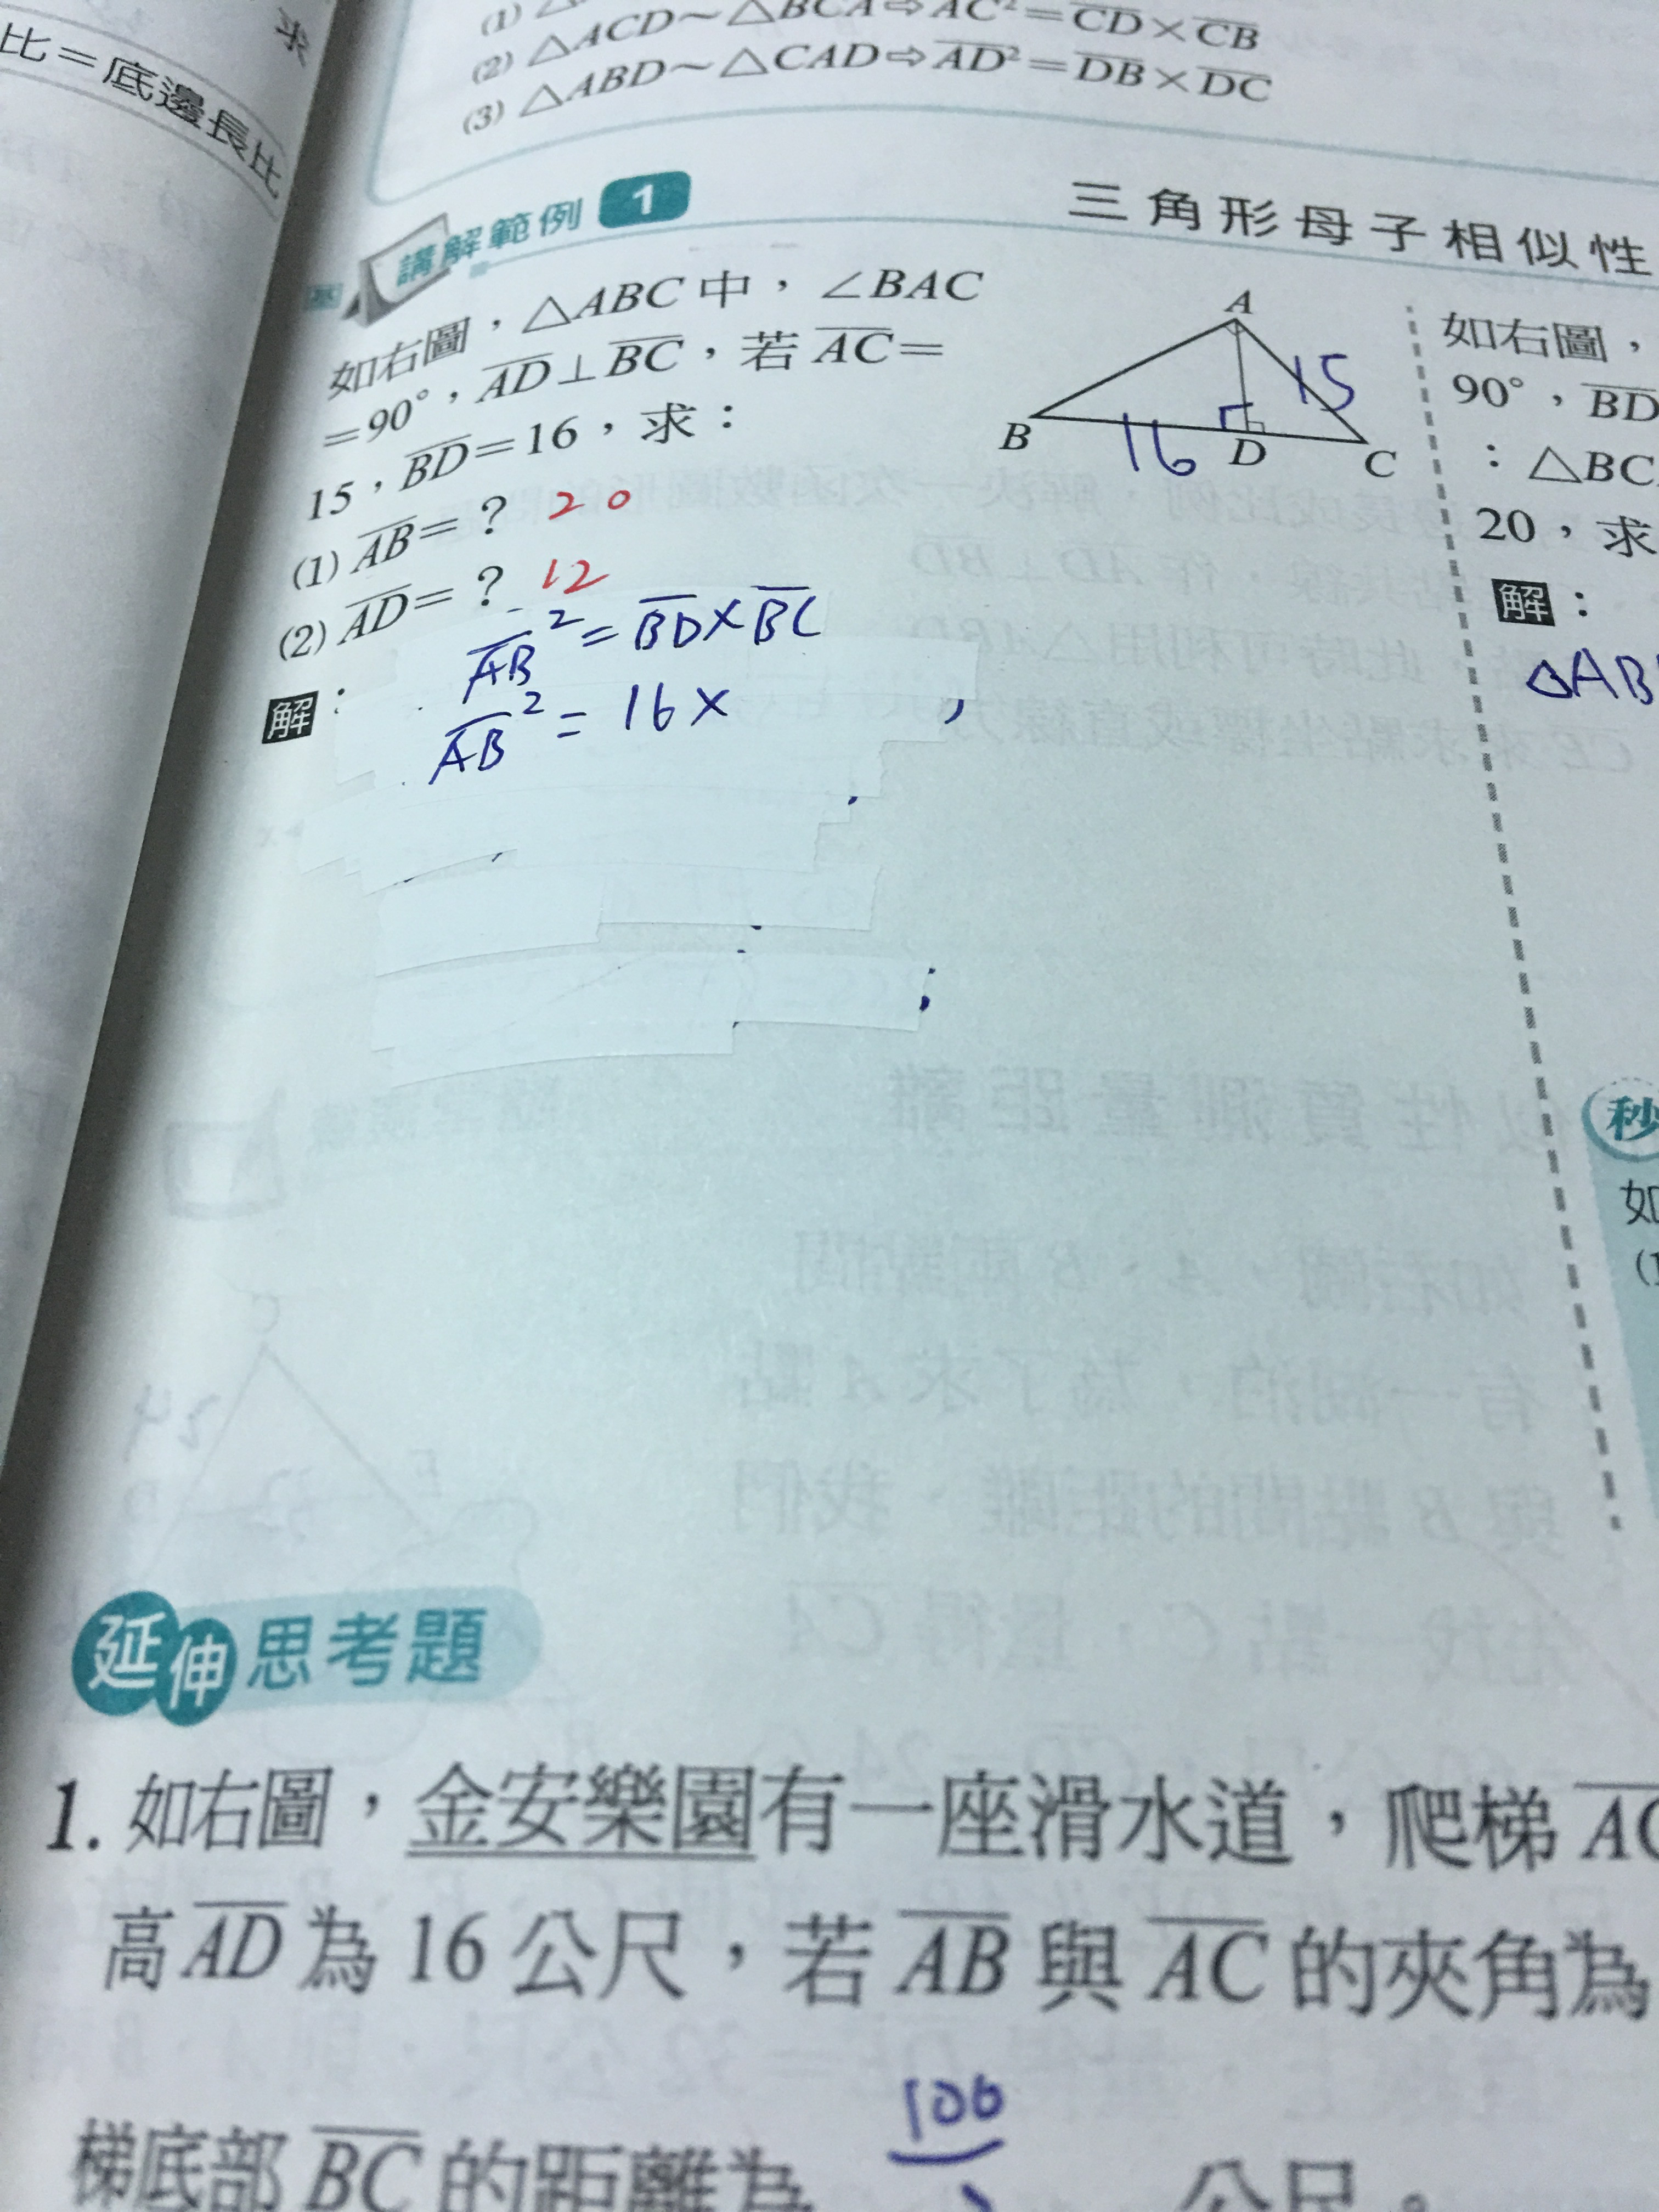 求
比＝底邊長比
(1)
(2) △ACD～△BCA⇨AC²＝CD×CB
(3) △ABD～△CAD⇨AD²＝DB×DC
講解範例 1
三角形母子相似性
如右圖，△ABC中，∠BAC
＝90°，AD⊥BC，若AC＝
15，BD＝16，求：
(1) AB＝？ 20
(2) AD＝？ 12
解：
AB²＝BD×BC
AB²＝16×
A
B
D
C
15
16
如右圖，
90°，BD
：△BC
20，求
解：
△AB
秒
如
延伸思考題
1. 如右圖，金安樂園有一座滑水道，爬梯
高AD為16公尺，若AB與AC的夾角為
梯底部BC的距離為 100 公尺。